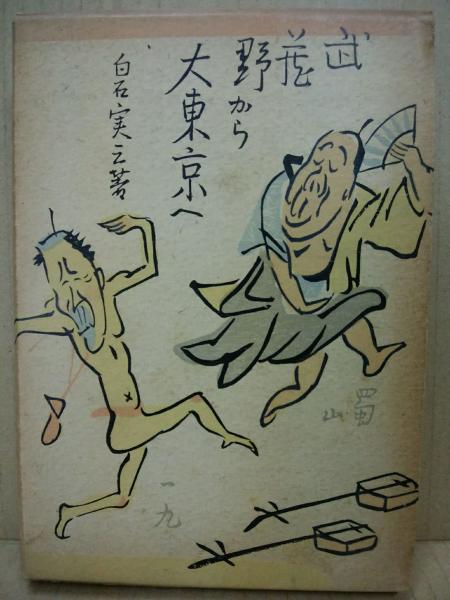 武蔵
野から
大東京へ
白石実三著
蜀
山
一九